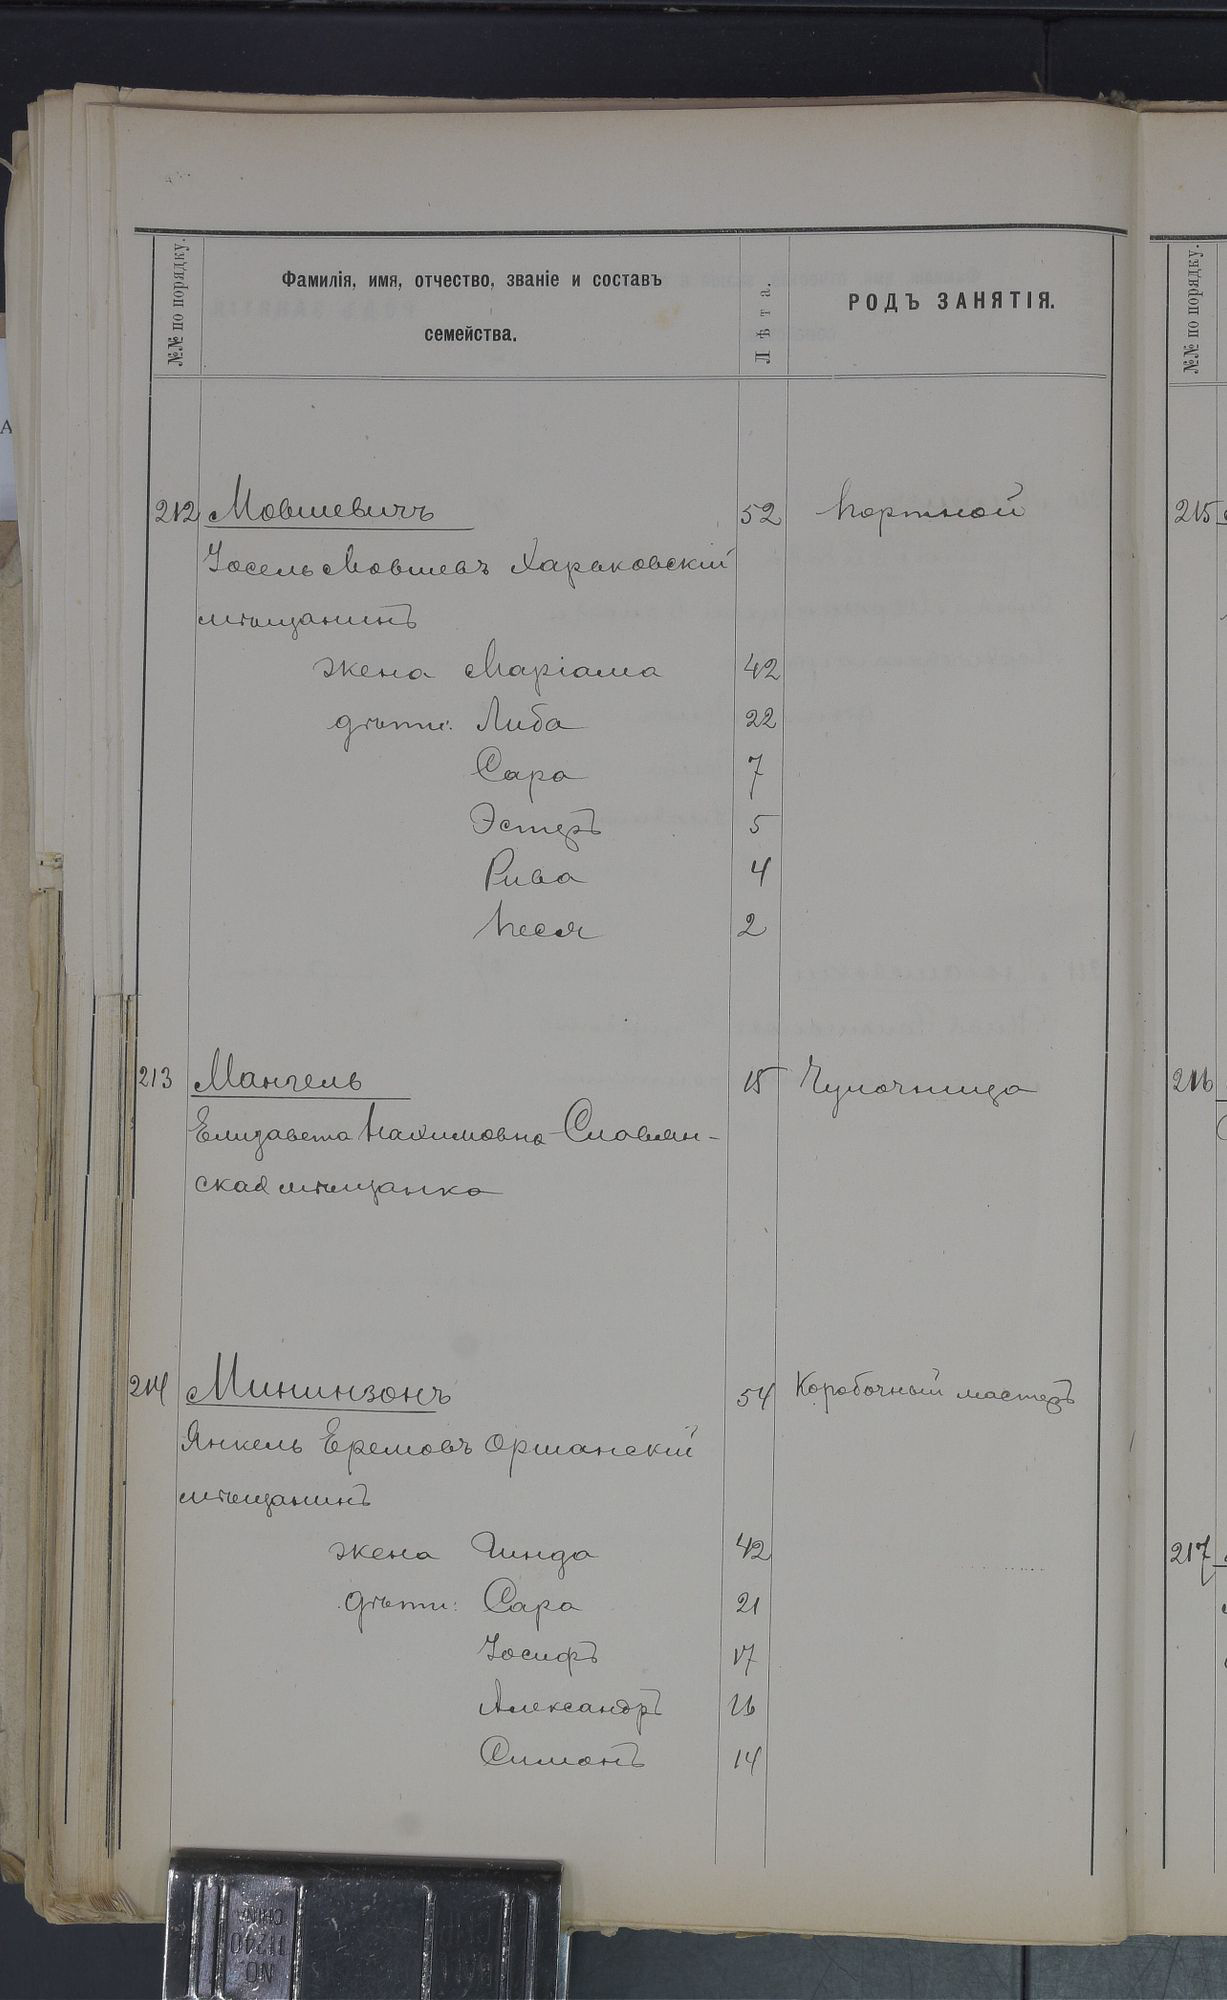 №№ по порядку.
Фамилія, имя, отчество, званіе и составъ
семейства.
Лѣта.
РОДЪ ЗАНЯТІЯ.
№№ по порядку.
212 Мовшевичъ 52 Портной
Іосель Мовшевъ Харьковскій
мѣщанинъ
жена Маріама 42
дѣти: Либа 22
Сара 7
Эстеръ 5
Рива 4
Песя 2
213 Мангель 15 Чулочница
Елизавета Нахимовна Славян-
ская мѣщанка
214 Мининзонъ 54 Коробочный мастеръ
Янкель Еремовъ Оршанскій
мѣщанинъ
жена Гинда 42
дѣти: Сара 21
Іосифъ 17
Александръ 16
Симонъ 14
215
216
217